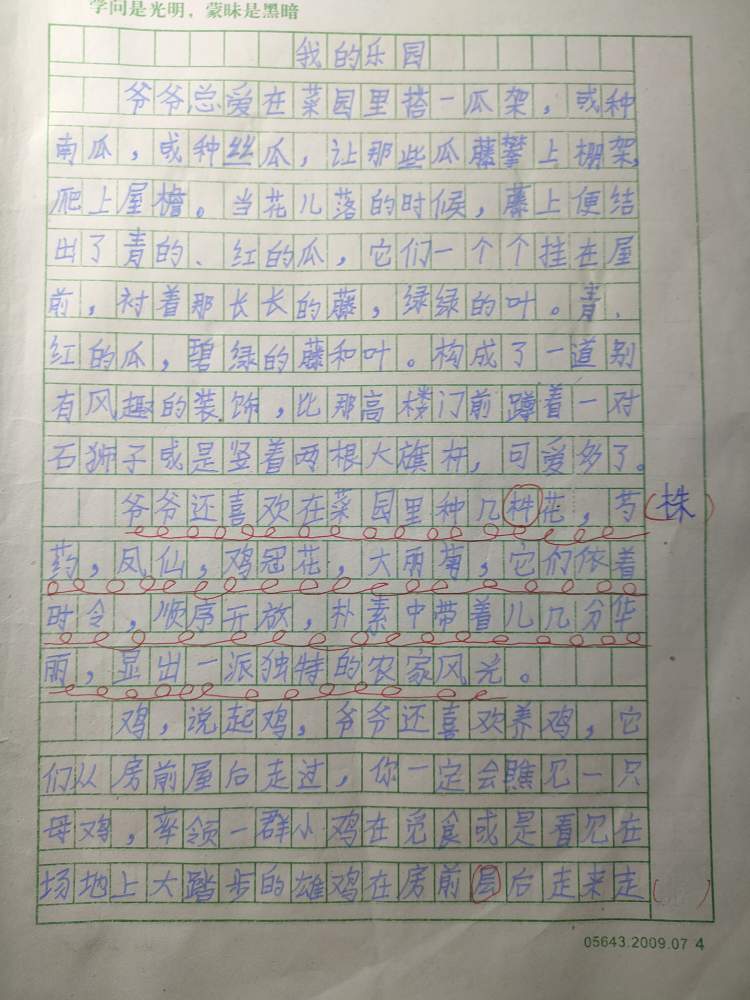 学问是光明，蒙昧是黑暗
我的乐园
爷爷总爱在菜园里搭一瓜架，或种
南瓜，或种丝瓜，让那些瓜藤攀上棚架，
爬上屋檐。当花儿落的时候，藤上便结
出了青的、红的瓜，它们一个个挂在屋
前，衬着那长长的藤，绿绿的叶。青、
红的瓜，碧绿的藤和叶。构成了一道别
有风趣的装饰，比那高楼门前蹲着一对
石狮子或是竖着两根大旗杆，可爱多了。
爷爷还喜欢在菜园里种几花，芍（株）
药，凤仙，鸡冠花，大丽菊，它们依着
时令，顺序开放，朴素中带着儿几分华
丽，显出一派独特的农家风光。
鸡，说起鸡，爷爷还喜欢养鸡，它
们从房前屋后走过，你一定会瞧见一只
母鸡，率领一群小鸡在觅食或是看见在
场地上大踏步的雄鸡在房前后走来走（）
05643.2009.07 4